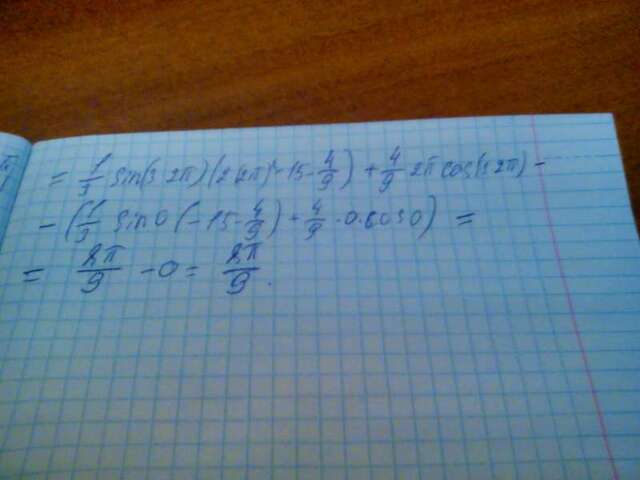 = 1/3 sin(3·2π)(2·4π²-15-4/9) + 4/9 2π cos(3·2π) -
- (1/3 sin 0 (-15-4/9) + 4/9 · 0 · cos 0) =
= 8π/9 - 0 = 8π/9.